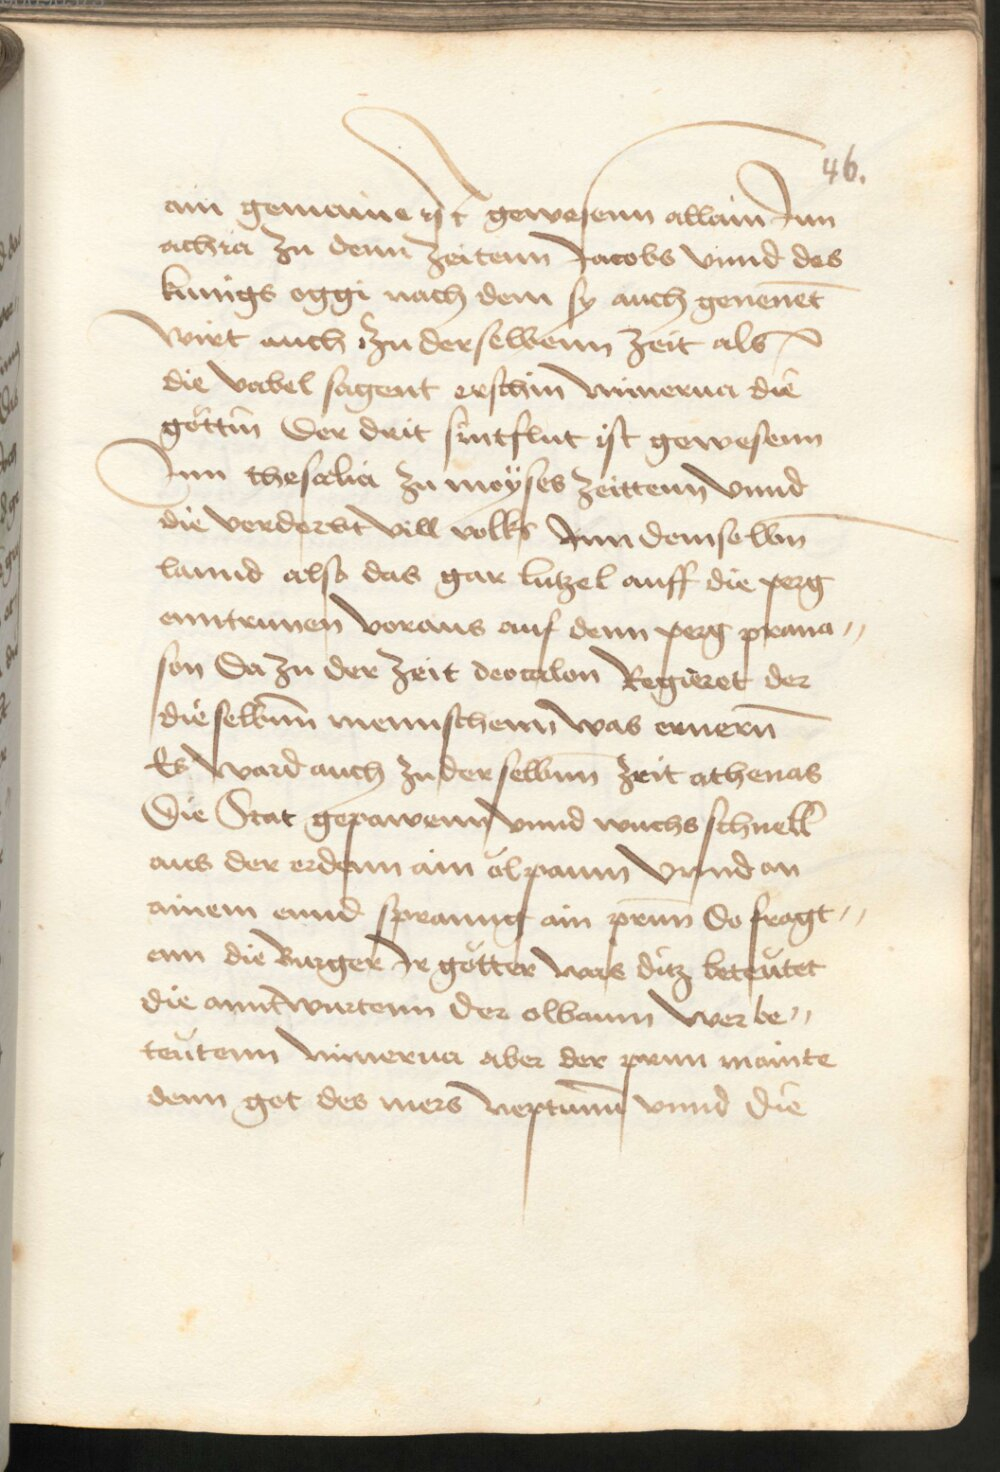 46.
ain gemaine ist gewesenn allain Inn
achia zu denn zeitenn Jacobs vnnd des
kunigs oggi nach dem sy auch genenet
wirt auch zu derselbenn zeit als
die vabel sagent erschin minerua die
göttin Der drit sintflut ist gewesenn
Inn thesalia zu moÿses zeittenn vnnd
die verderbt vill volks Inn demselbn
lannd also das gar lutzel auff die perg
enntrunen voraus auf denn perg prana〃
son Da zu der zeit deocalon Regieret der
dieselbnn mennschenn was ernern
Es ward auch zu der selbnn zeit athenas
Die Stat gepawenn vnnd wuchs schnell
aus der erdenn ain ölpaum vnnd an
ainem ennd spranng ain prun do fragt〃
enn die Burger Ir götter was ditz beteutet
die anntwurtenn der olbaum wer be〃
teutenn minerua aber der prun mainte
denn got des mers neptunum vnnd die